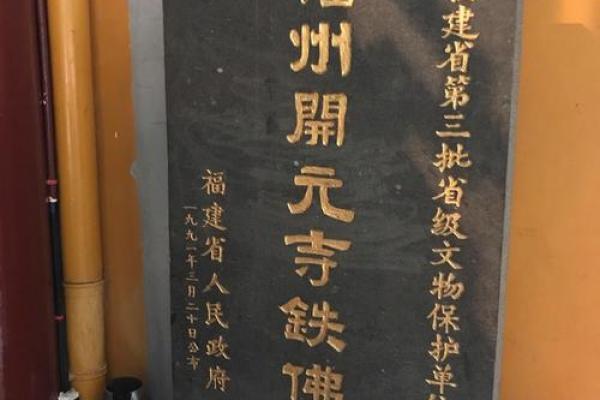 福建省第三批省级文物保护单位
福州開元寺鉄佛
福建省人民政府
一九九一年三月二十日公布